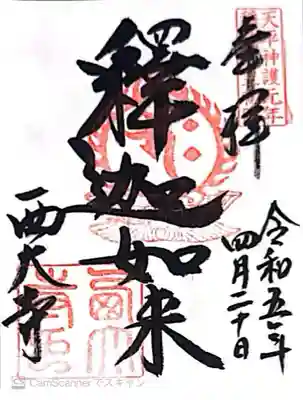 奉拝
天平神護元年
釋迦如来
西大寺
令和五年
四月二十日
CamScannerでスキャン